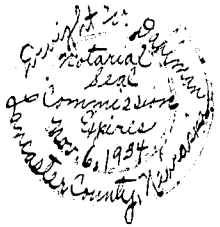 Dwight W.
Notarial
Seal
Commission
Expires
Nov. 6, 1934
Lancaster County, Nebraska